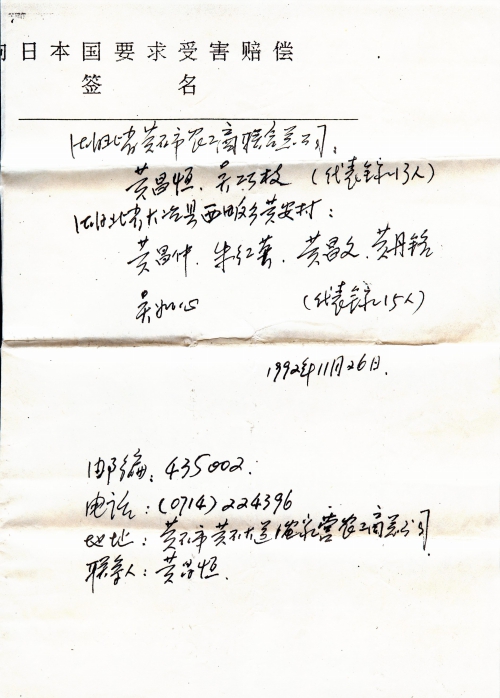 向日本国要求受害赔偿
签 名
湖北省黄石市农工商联合总公司:
黄昌恒、吴巧枝 (代表全家13人)
湖北省大冶县西畈乡黄安村:
黄昌仲、朱红英、黄昌文、黄丹铭
吴如心 (代表全家15人)
1992年11月26日.
邮编: 435002.
电话: (0714) 224396
地址: 黄石市黄石大道 农工商总公司
联系人: 黄昌恒.